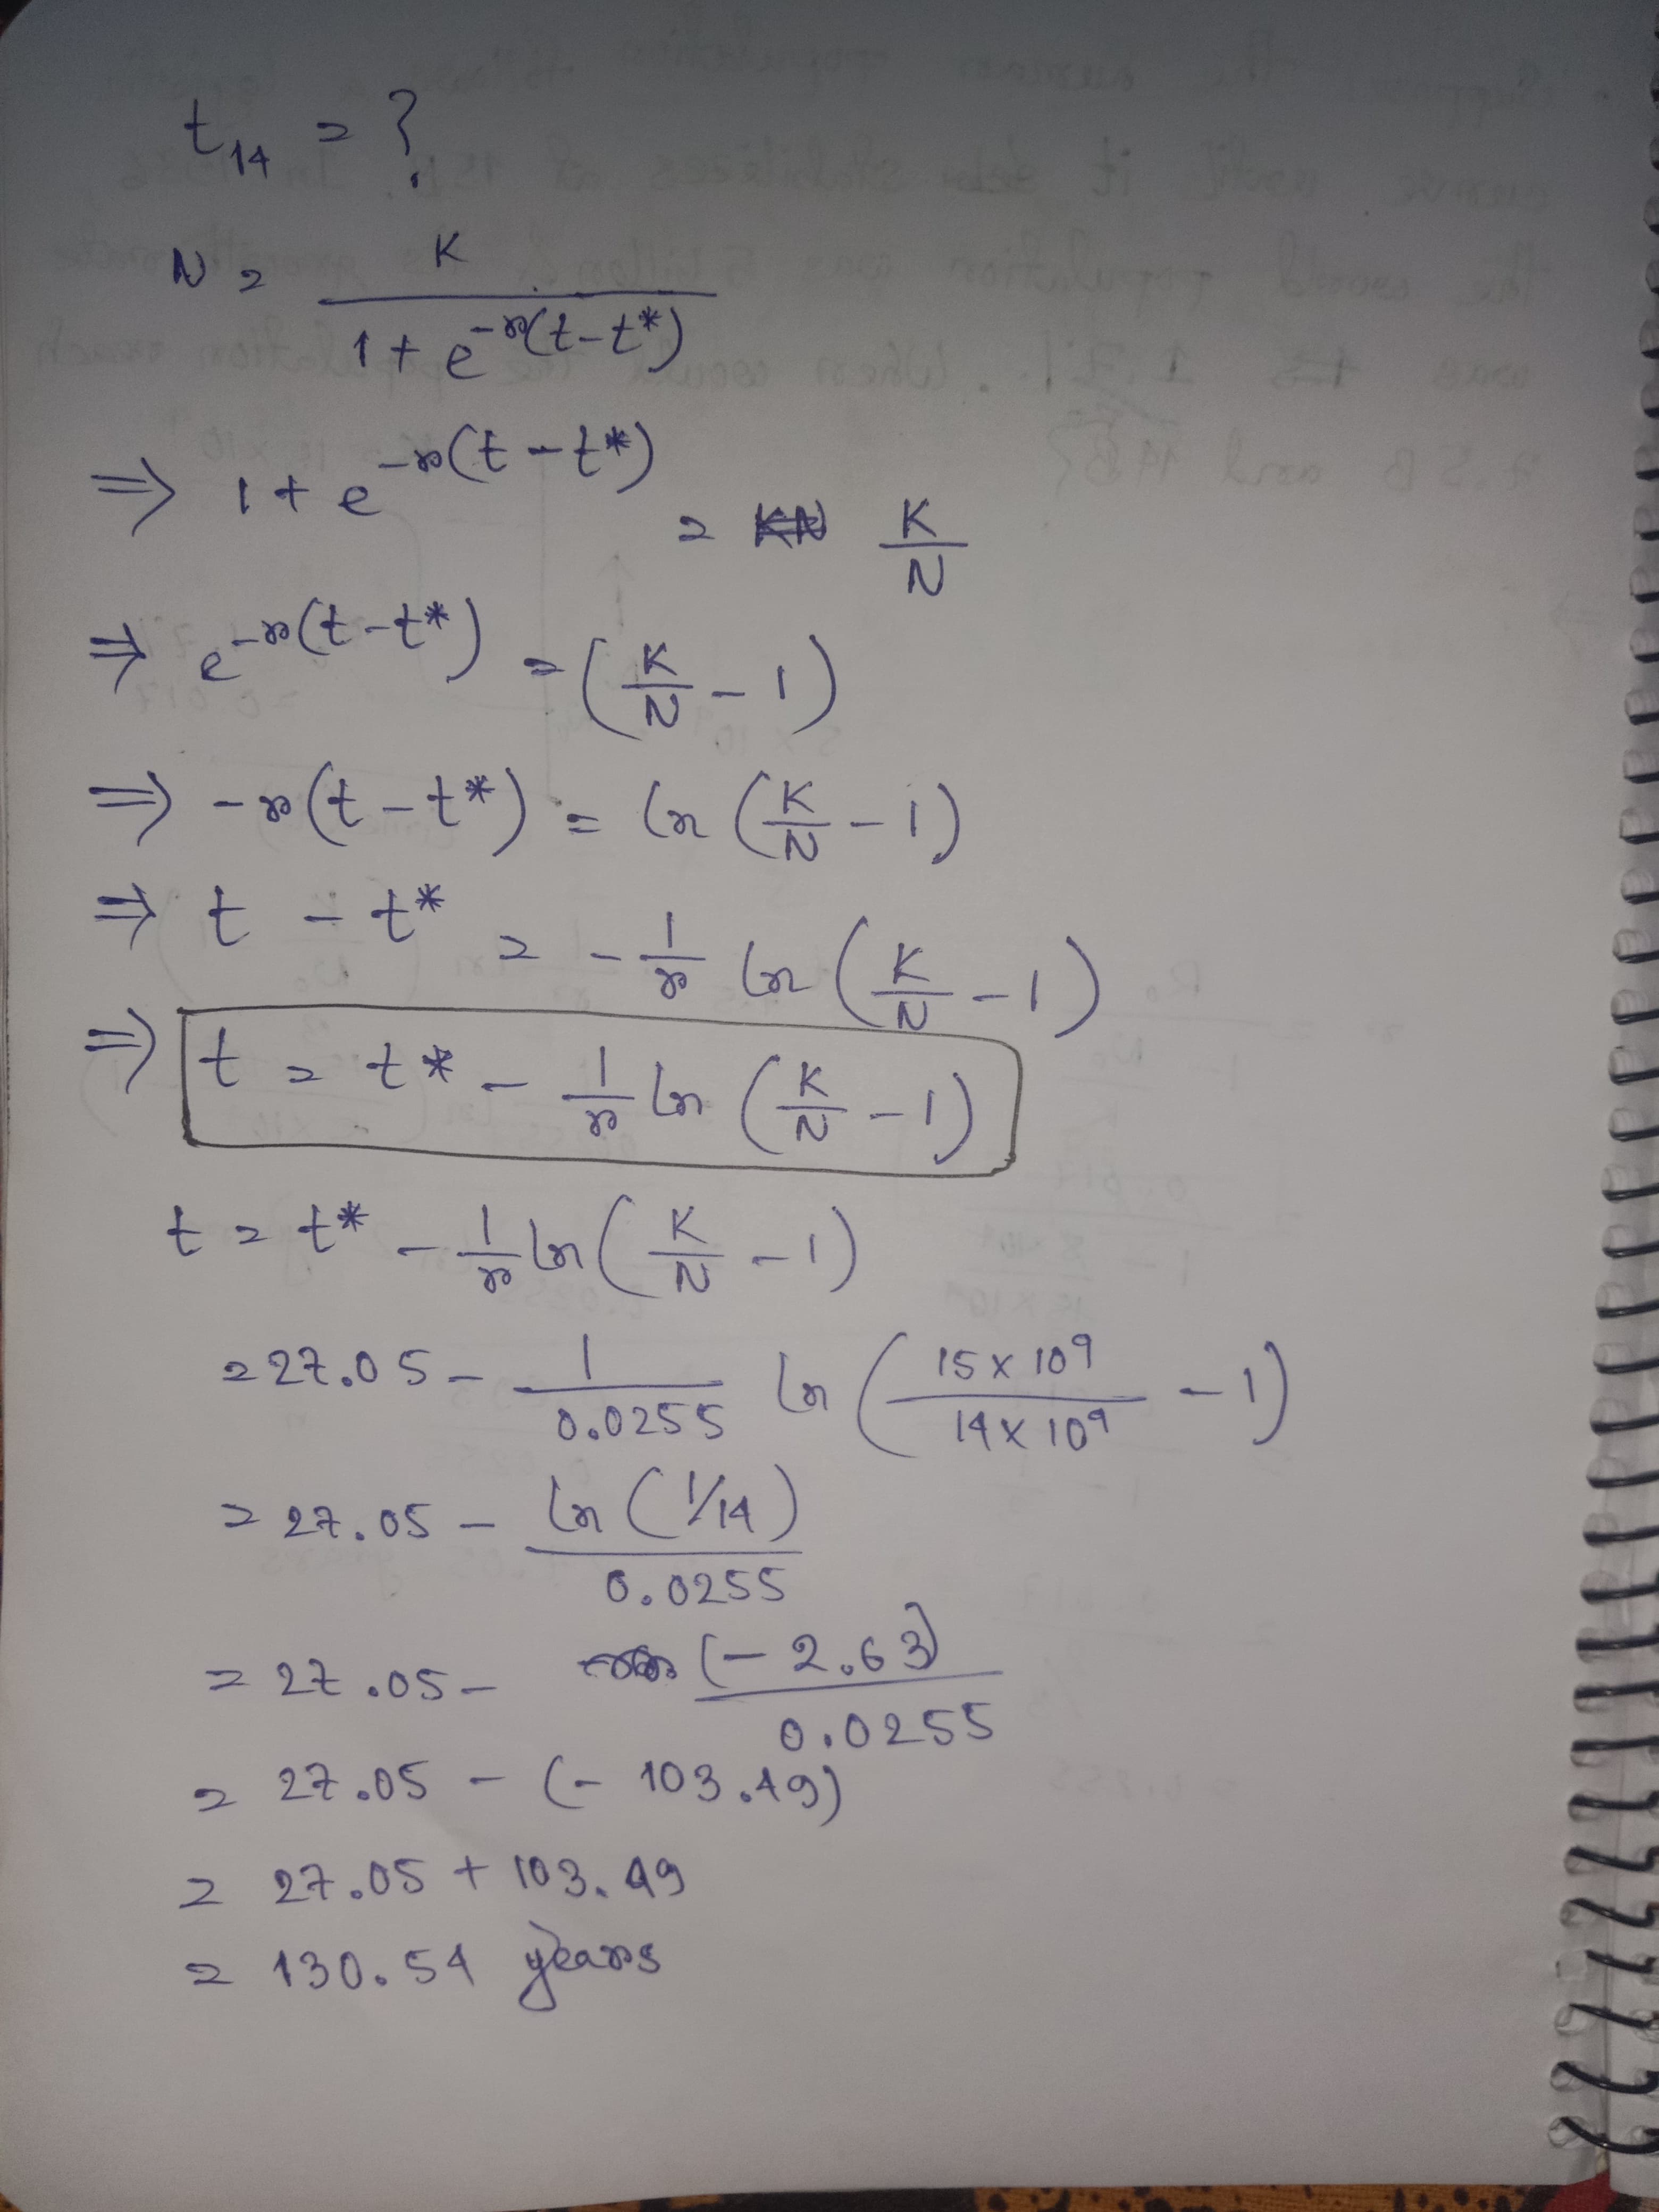 t₁₄ = ?
N = K / (1 + e^(-r(t - t*)))
⇒ 1 + e^(-r(t - t*)) = K/N
⇒ e^(-r(t - t*)) = (K/N - 1)
⇒ -r(t - t*) = ln (K/N - 1)
⇒ t - t* = - 1/r ln (K/N - 1)
⇒ t = t* - 1/r ln (K/N - 1)
t = t* - 1/r ln (K/N - 1)
= 27.05 - 1/0.0255 ln (15 × 10⁹ / 14 × 10⁹ - 1)
= 27.05 - ln (1/14) / 0.0255
= 27.05 - (- 2.63) / 0.0255
= 27.05 - (- 103.49)
= 27.05 + 103.49
= 130.54 years